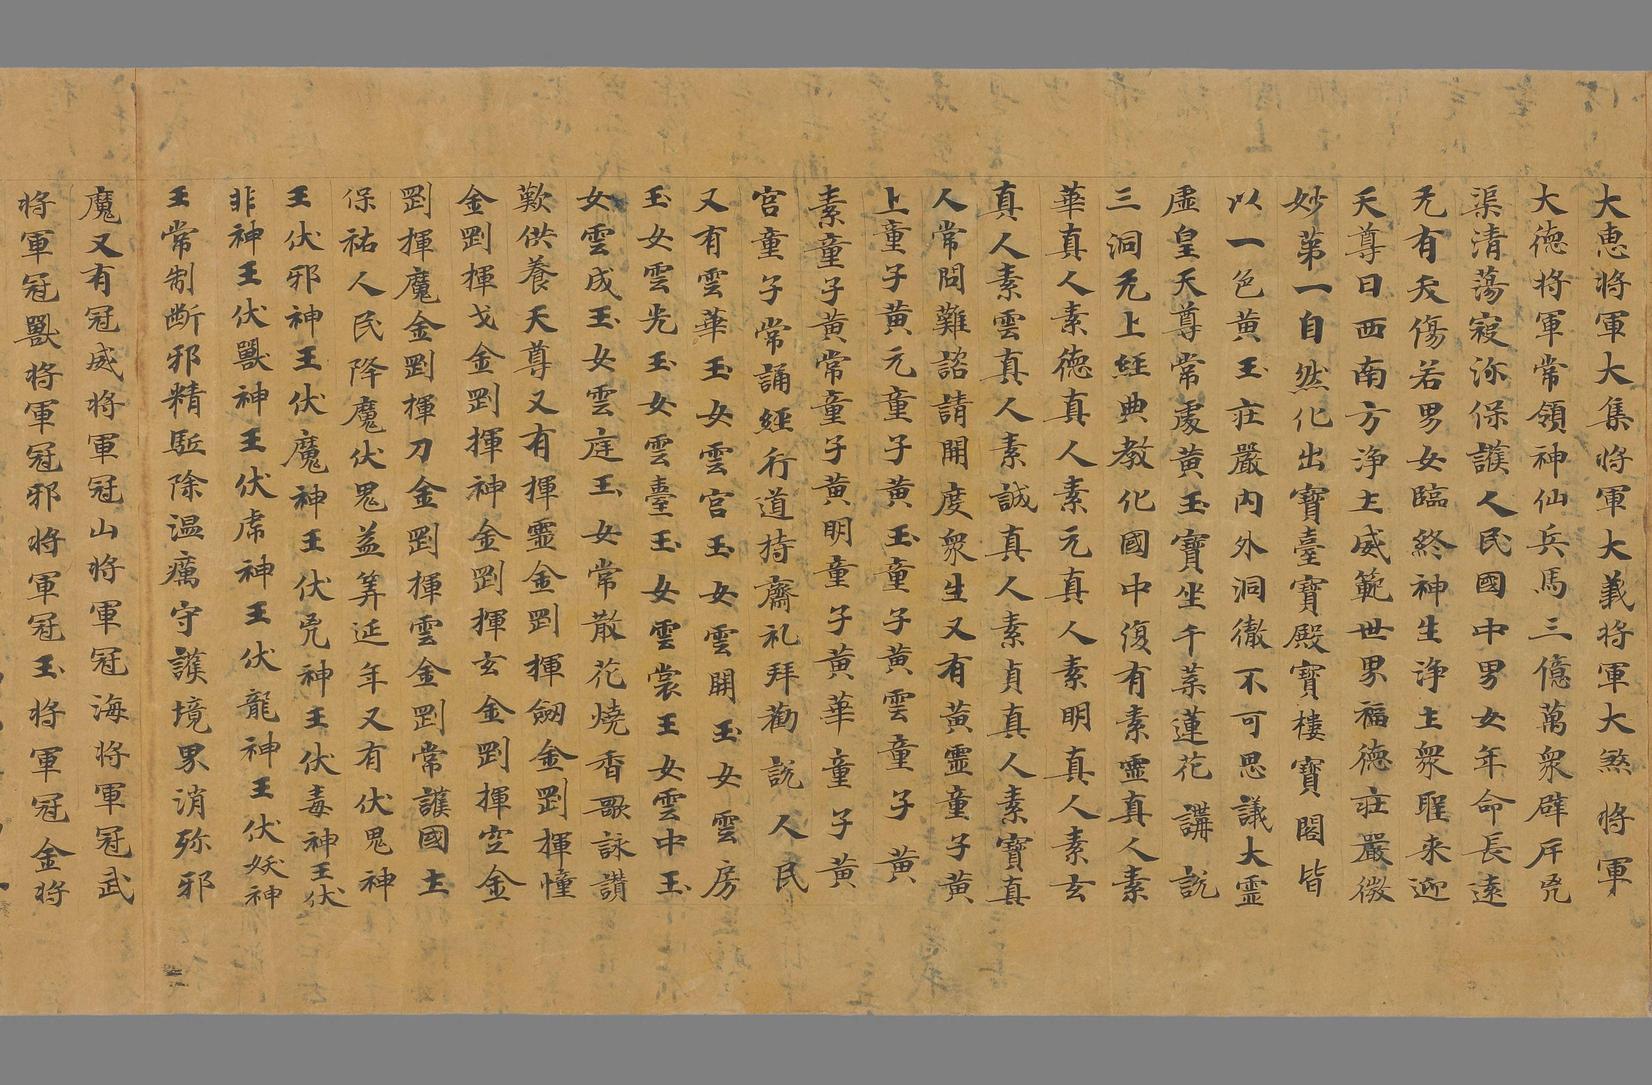 大恵将軍大集将軍大義将軍大煞将軍
大徳将軍常領神仙兵馬三億萬衆辟斥兇
渠清蕩寇沵保護人民國中男女年命長遠
无有夭傷若男女臨終神生浄土衆聖来迎
天尊曰西南方浄土威範世界福徳莊嚴微
妙第一自然化出寶臺寶殿寶樓寶閣皆
以一色黄玉莊嚴内外洞徹不可思議大靈
虚皇天尊常處黄玉寶坐千葉蓮花講説
三洞无上經典教化國中復有素靈真人素
華真人素徳真人素元真人素明真人素玄
真人素雲真人素誠真人素貞真人素寶真
人常問難諮請開度衆生又有黄靈童子黄
上童子黄元童子黄玉童子黄雲童子黄
素童子黄常童子黄明童子黄華童子黄
宫童子常誦經行道持齋礼拜勸説人民
又有雲華玉女雲宫玉女雲開玉女雲房
玉女雲光玉女雲臺玉女雲裳玉女雲中玉
女雲成玉女雲庭玉女常散花燒香歌詠讃
歎供養天尊又有揮靈金剛揮劒金剛揮幢
金剛揮戈金剛揮神金剛揮玄金剛揮空金
剛揮魔金剛揮刀金剛揮雲金剛常護國土
保祐人民降魔伏鬼益筭延年又有伏鬼神
王伏邪神王伏魔神王伏兇神王伏毒神王伏
非神王伏獸神王伏席神王伏龍神王伏妖神
王常制断邪精駈除温癘守護境界消殄邪
魔又有冠威将軍冠山将軍冠海将軍冠武
将軍冠獸将軍冠邪将軍冠玉将軍冠金将